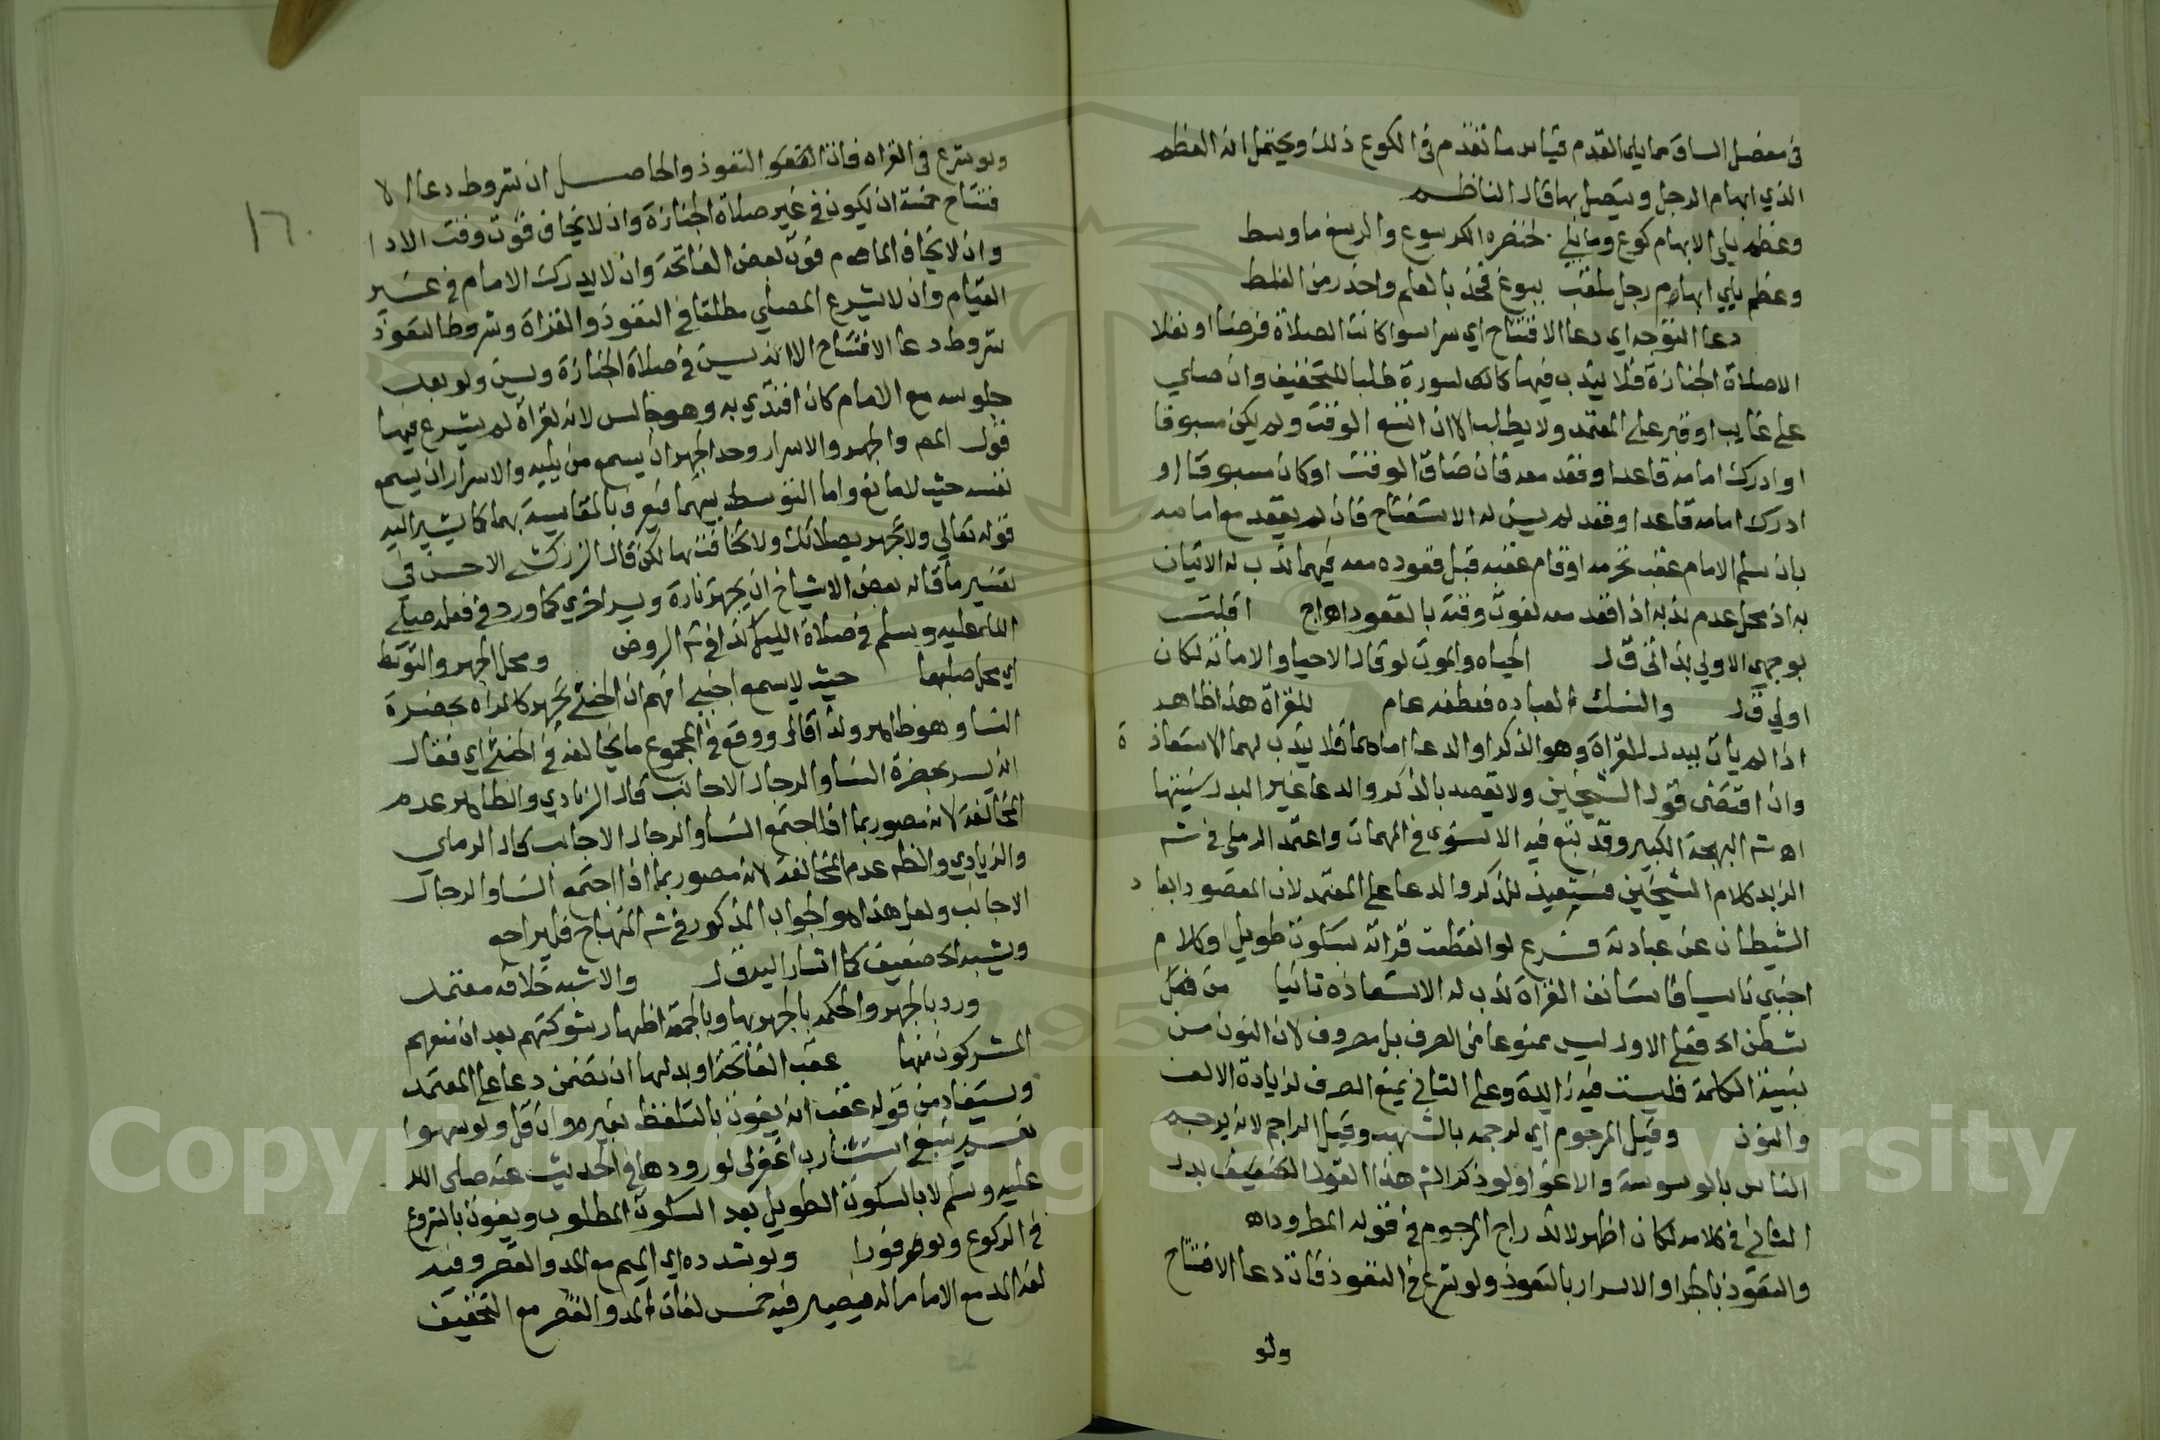 في مفصل الساق مما يلي القدم قياس ما تقدم في الكوع ذلك ويحتمل انه العظم
الذي ابهام الرجل ويتصل بها قال الناظم
وعظم يلي الابهام كوع وما يلي لخنصره الكرسوع والرسغ ما وسط
وعظم يلي ابهام رجل ملقب ببوع فخذ بالعلم واحذر من الغلط
دعا التوجه اي دعا الافتتاح اي سرا سوا كانت الصلاة فرضا او نفلا
الا صلاة الجنازة فلا يندب فيها كالسورة طلبا للتخفيف وان صلي
علي غايب او قبر علي المعتمد ولا يطلب الا ان اتسع الوقت ولم يكن مسبوقا
او ادرك امامه قاعدا وقعد معه فان ضاق الوقت او كان مسبوقا او
ادرك امامه قاعدا وقعد لم يسن له الاستفتاح فان لم يقعد مع امامه
بان سلم الامام عقب تحرمه او قام عقبه قبل قعوده معه فيهما ندب له الاتيان
به اذ محل عدم ندبه اذا قعد معه لفوت وقته بالقعود اهـ اج اقبلت
بوجهي الاولي بذاتي قول الحياه والموت لو قال الاحيا والاماته لكان
اولي قول والنسك العباده فعطفه عام للقراة هذا ظاهر
اذا لم يات ببدل للقراة وهو الذكر او الدعا اما هما فلا يندب لهما الاستعاذة
وان اقتضى قول الشيخين ولا يقصد بالذكر والدعا غير البدل سنيتها
اهـ شه البهجة الكبير وقد تبع فيه الاسنوي في المهمات واعتمد الرملي في شه
الزبد كلام الشيخين فيستعيذ للذكر والدعا علي المعتمد لان المقصود ابعاد
الشيطان عن عبادته فرع لو انقطعت قراته بسكوت طويل او كلام
اجنبي ناسيا فاستانف القراة ندب له الاستعاذه ثانيا من فعل
شطن اي فعلي الاول ليس ممنوعا من الصرف بل مصروف لان النون من
بنية الكلمة فليست فيه زايدة وعلي الثاني يمنع الصرف لزيادة الالف
والنون وقيل المرجوم اي لرجمه بالشهب وقيل الراجم لانه يرجم
الناس بالوسوسة والاغوا ولو ذكر الش هذا القول الضعيف بدل
الثاني في كلامه لكان اظهر لاندراج المرجوم في قوله المطرود اهـ
والتعوذ بالجر او الاسرار بالتعوذ ولو شرع في التعوذ فات دعا الافتتاح
ولو
١٦
ولو شرع في القراه فات التعوذ والحاصل ان شروط دعا الا
فتتاح خمسة ان يكون في غير صلاة الجنازة وان لا يخاف فوت وقت الادا
وان لا يخاف الماموم فوت بعض الفاتحة وان لا يدرك الامام في غير
القيام وان لا يشرع المصلي مطلقا في التعوذ والقراة وشروط التعوذ
شروط دعا الافتتاح الا انه يسن في صلاة الجنازة ويسن ولو بعد
جلوسه مع الامام كان اقتدي به وهو جالس لانه لقراة لم يشرع فيها
قول المص والجهر والاسرار وحد الجهر ان يسمع من يليه والاسرار ان يسمع
نفسه حيث لا مانع واما التوسط بينهما فيعرف بالمقايسة بهما كما يشير اليه
قوله تعالي ولا تجهر بصلاتك ولا تخافت بها لكن قال الزركشي الاحسن في
تفسير ما قاله بعض الاشياخ ان يجهر تارة ويسر اخري كما ورد في فعله صلي
الله عليه وسلم في صلاة الليل كذا في شه الروض ومحل الجهر والتوسط
اي محل طلبهما حيث لا يسمع اجنبي افهم ان الخنثي يجهر كالمراه بحضرة
النسا وهو ظاهر ولذا قال ووقع في المجموع ما يخالفه في الخنثي اي فقال
انه يسر بحضرة النسا والرجال الاجانب قال الزيادي والظاهر عدم
المخالفة لانه مصور بما اذا اجتمع النسا والرجال الاجانب قال الرملي
والزيادي والظه عدم المخالفة لانه مصور بما اذا اجتمع النسا والرجال
الاجانب ولعل هذا هو الجواب المذكور في شه المنهاج فليراجع
ويشبه اي ضعيف كما اشار اليه قول والاشبه خلافه معتمد
ورد بالجهر والحكمه بالجهر بها وبالجمعة اظهار شوكتهم بعد ان منعهم
المشركون منها عقب الفاتحة او بدلها ان تضمن دعا علي المعتمد
ويستفاد من قوله عقب انه يفوت بالتلفظ بغيره وان قل ولو سهوا
نعم ينبغي استثنا رب اغفر لي لورودها في الحديث عنه صلى الله
عليه وسلم لا بالسكوت الطويل بعد السكوت المطلوب ويفوت بالشروع
في الركوع ولو فورا ولو شدده اي الميم مع المد والقصر وفيه
لغة المد مع الامالة فيصير فيه خمس لغات المد والقصر مع التخفيف